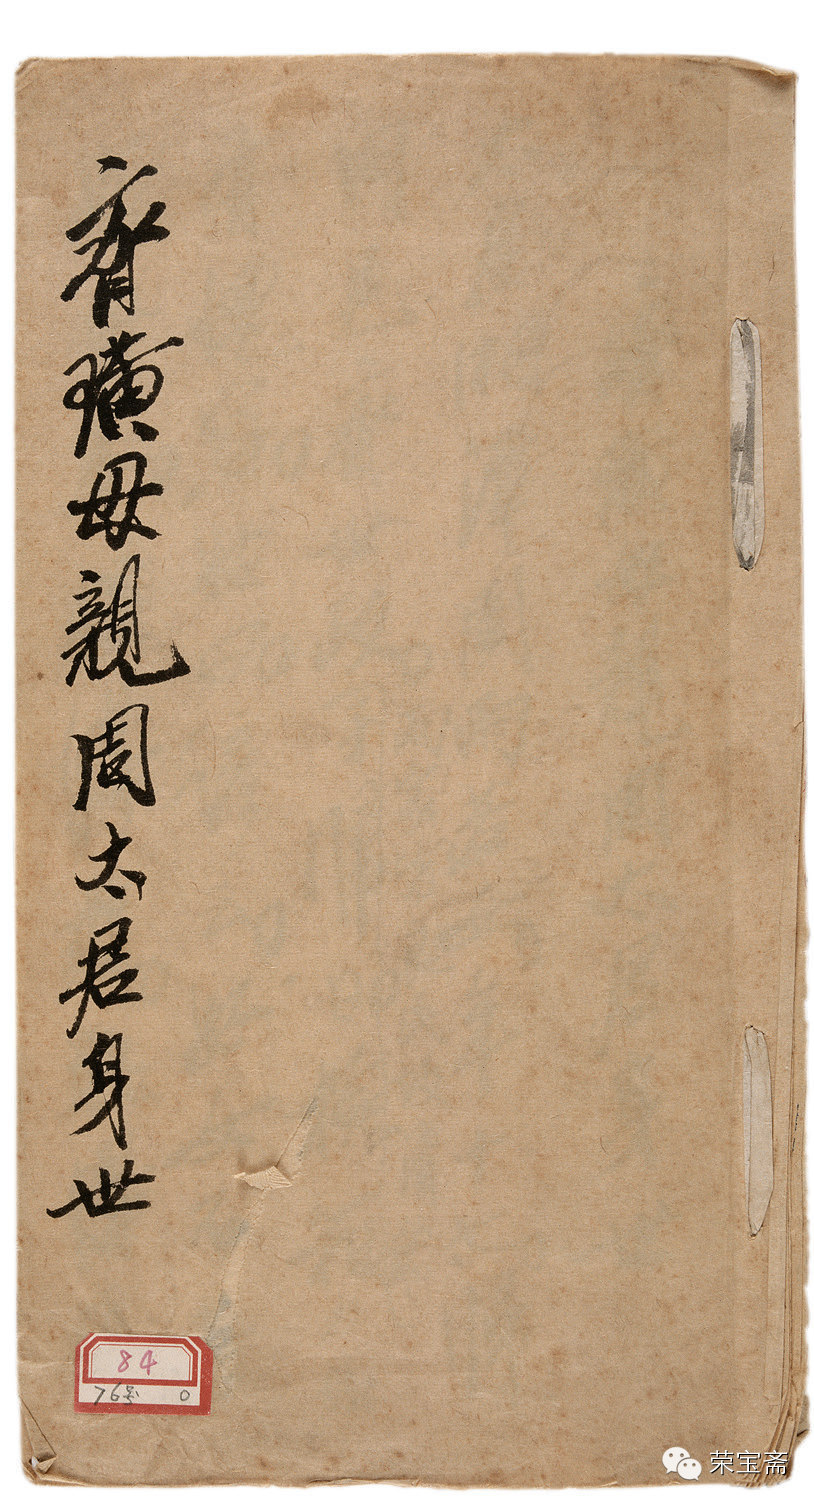 齊璜母親周太君身世
84
76号 0
荣宝斋